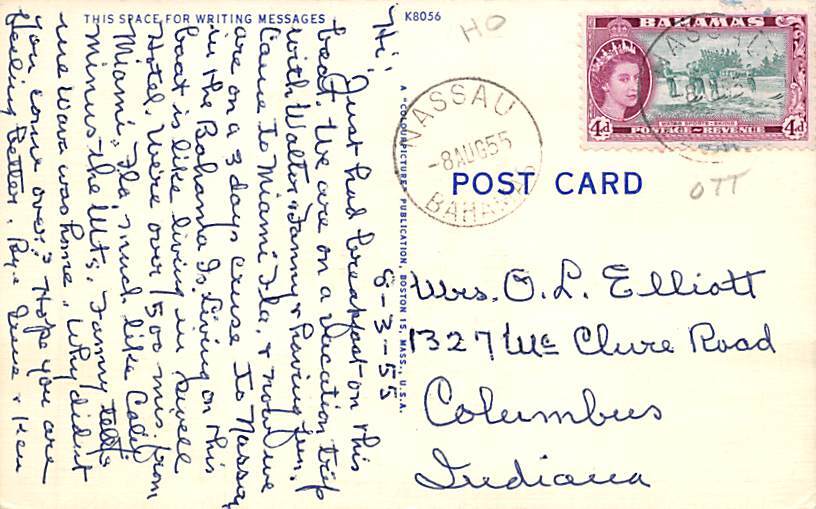 THIS SPACE FOR WRITING MESSAGES
K8056
Hi! Just had breakfast on this
boat. We are on a vacation trip
with Walter & Fanny & having fun.
Came to Miami Fla, & now we
are on a 3 days cruse to Nassau
in the Bahama Is. Living on this
boat is like living in swell
Hotel. We're over 500 mis. from
Miami, Fla. much like Calif
minus the Mts. Fanny tells
me Wava was home. Why didn't
you come over? Hope you are
feeling better. Bye Irene & Ken
A "COLOURPICTURE" PUBLICATION, BOSTON 15, MASS., U.S.A.
HO
NASSAU
-8 AUG 55
BAHAMAS
BAHAMAS
4d
4d
POSTAGE & REVENUE
NASSAU
OTT
POST CARD
8-3-55
Mrs. O. L. Elliott
1327 Mc Clure Road
Columbus
Indiana